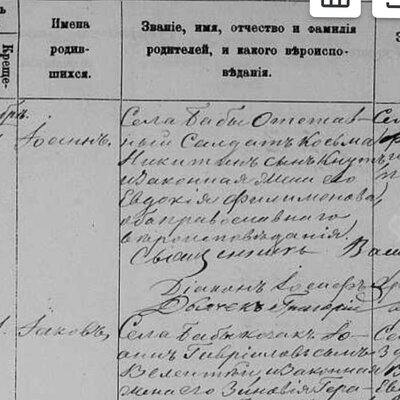 Креще-
Имена
родив-
шихся.
Званіе, имя, отчество и фамилія
родителей, и какого вѣроиспо-
вѣданія.
Іоаннъ,
Села Бабы Отстав-
ный Солдатъ Косьма
Никитинъ сынъ
и законная жена его
Евдокія Филимонова,
оба православнаго
вѣроисповѣданія.
Священникъ
Діаконъ Іосифъ
Григорій
Іаковъ,
Села Бабы козакъ Іо-
аннъ Гавріиловъ сынъ
и законная
жена его Зиновія Гера-